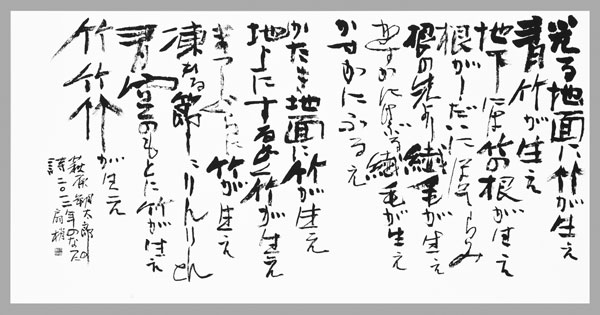 光る地面に竹が生え
青竹が生え
地下には竹の根が生え
根がしだいにほそらみ
根の先より繊毛が生え
かすかにけぶる繊毛が生え
かすかにふるえ
かたき地面に竹が生え
地上にするどく竹が生え
まっしぐらに竹が生え
凍れる節節りんりんと
青空のもとに竹が生え
竹竹竹が生え
萩原朔太郎の
詩二〇一二年のなつ